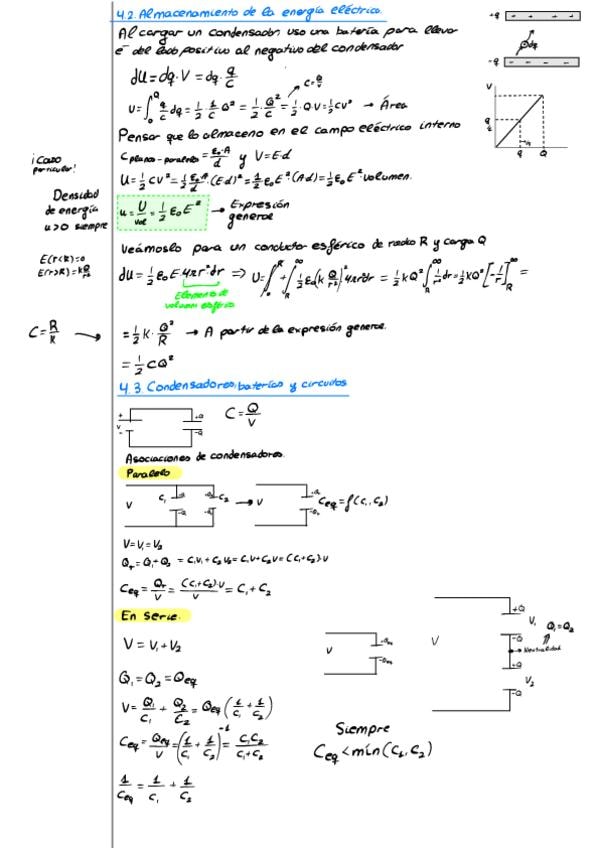 4.2. Almacenamiento de la energía eléctrica.
Al cargar un condensador, uso una batería para llevar
e⁻ del lado positivo al negativo del condensador
+q
-q
dq
dU = dq·V = dq·q/C
C = Q/V
U = ∫₀^Q q/C dq = 1/2 · 1/C Q² = 1/2 · Q²/C = 1/2 · QV = 1/2 CV² → Área
V
q
Q
Pensar que lo almaceno en el campo eléctrico interno
¡Caso particular!
C plano-paralelo = ε₀·A/d y V = E·d
U = 1/2 CV² = 1/2 ε₀·A/d · (Ed)² = 1/2 ε₀E² (Ad) = 1/2 ε₀E² · volumen.
Densidad
de energía
u>0 siempre
u = U/vol = 1/2 ε₀E² → Expresión
general
Veámoslo para un conductor esférico de radio R y carga Q
E(r<R)=0
E(r>R)=kQ/r²
dU = 1/2 ε₀E·4πr²dr ⇒ U = ∫₀^R + ∫_R^∞ 1/2 ε₀(k Q/r²)² 4πr²dr = 1/2 kQ² ∫_R^∞ 1/r² dr = 1/2 kQ² [-1/r]_R^∞ =
Elemento de
volumen esférico
C = R/k →
= 1/2 k · Q²/R → A partir de la expresión general.
= 1/2 CQ²
4.3 Condensadores, baterías y circuitos
+
V
-
+Q
-Q
C = Q/V
Asociaciones de condensadores.
Paralelo
V
C₁
C₂
→ V
Ceq = f(C₁, C₂)
V = V₁ = V₂
Q_T = Q₁ + Q₂ = C₁V₁ + C₂V₂ = C₁V + C₂V = (C₁+C₂)·V
Ceq = Q_T/V = (C₁+C₂)·V/V = C₁ + C₂
En serie:
V = V₁ + V₂
Q₁ = Q₂ = Qeq
V = Q₁/C₁ + Q₂/C₂ = Qeq (1/C₁ + 1/C₂)
Ceq = Qeq/V = (1/C₁ + 1/C₂)⁻¹ = C₁C₂/C₁+C₂
1/Ceq = 1/C₁ + 1/C₂
V
V
+Q
V₁
-Q
Q₁=Q₂
→ Neutralidad
+Q
V₂
-Q
Siempre
Ceq < mín(C₁, C₂)